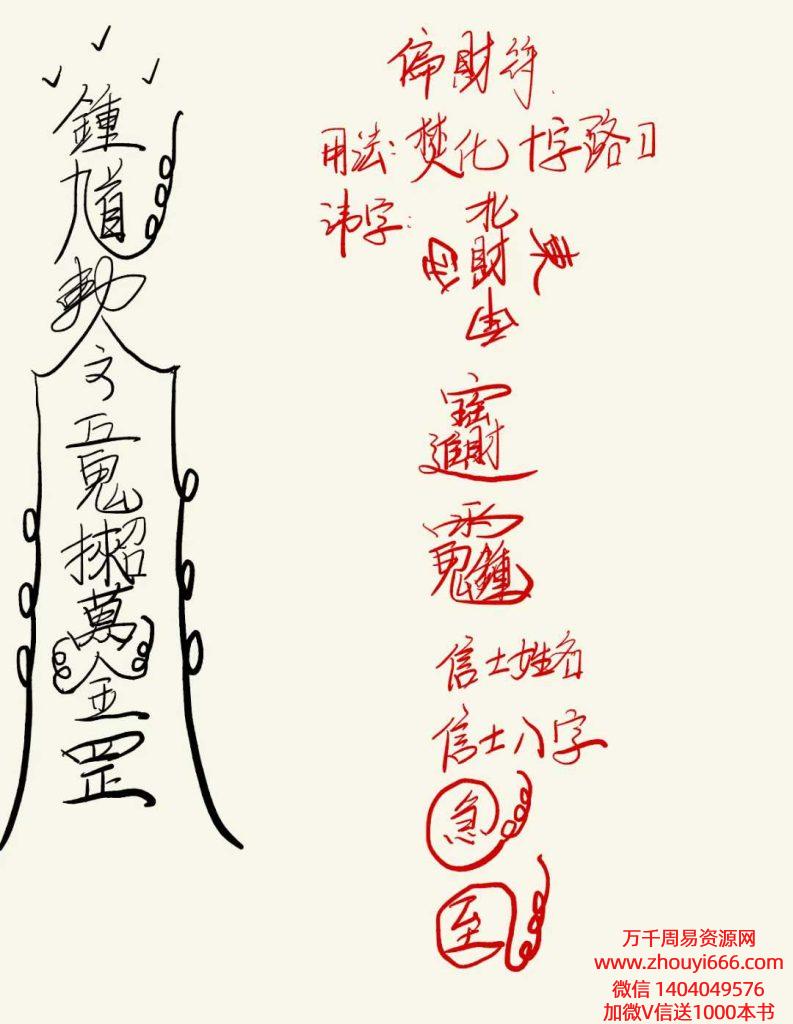 鍾
馗
勅
令
五
鬼
招
萬
金
罡
偏財符
用法:焚化十字路口
讳字:
北
東
財
進財
鬼鍾
信士姓名
信士八字
急
至
万千周易资源网
www.zhouyi666.com
微信 1404049576
加微V信送1000本书